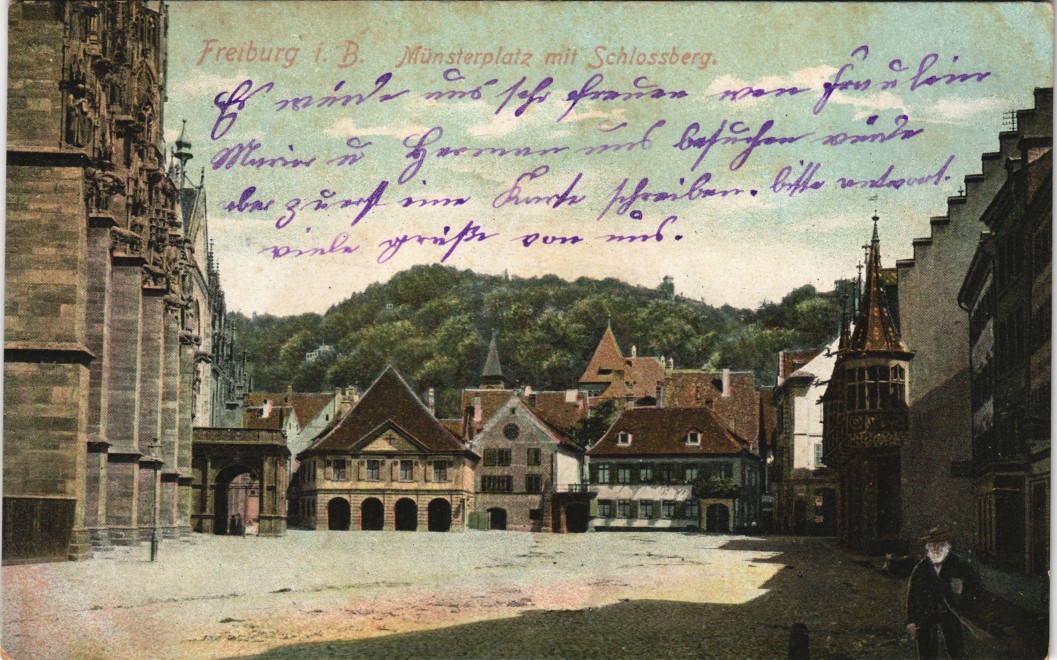 Freiburg i. B. Münsterplatz mit Schlossberg.
Es würde uns sehr freuen wen Fräulein
Marie u Herman uns besuchen würde
aber zuerst eine Karte schreiben. bitte antwort.
viele grüße von uns.